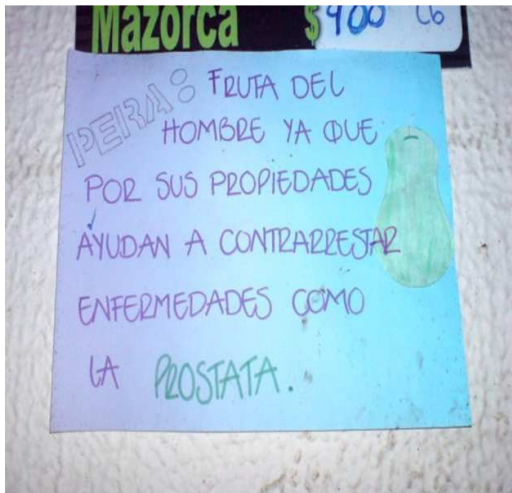 Mazorca $900 Cb
PERA: FRUTA DEL
HOMBRE YA QUE
POR SUS PROPIEDADES
AYUDAN A CONTRARRESTAR
ENFERMEDADES COMO
LA PROSTATA.